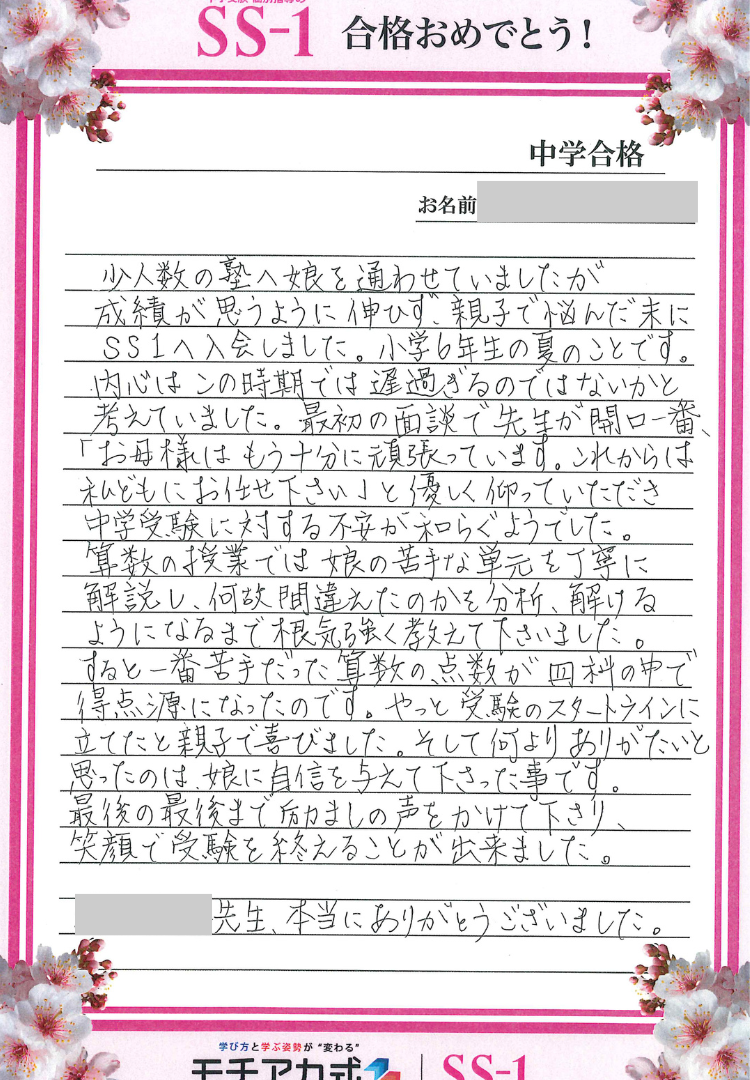 SS-1 合格おめでとう!
中学合格
お名前
少人数の塾へ娘を通わせていましたが
成績が思うように伸びず、親子で悩んだ末に
SS1へ入会しました。小学6年生の夏のことです。
内心はこの時期では遅過ぎるのではないかと
考えていました。最初の面談で先生が開口一番、
「お母様はもう十分に頑張っています。これからは
私どもにお任せ下さい」と優しく仰っていただき
中学受験に対する不安が和らぐようでした。
算数の授業では娘の苦手な単元を丁寧に
解説し、何故間違えたのかを分析、解ける
ようになるまで根気強く教えて下さいました。
すると一番苦手だった算数の点数が四科の中で
得点源になったのです。やっと受験のスタートラインに
立てたと親子で喜びました。そして何よりありがたいと
思ったのは、娘に自信を与えて下さった事です。
最後の最後まで励ましの声をかけて下さり、
笑顔で受験を終えることが出来ました。
先生、本当にありがとうございました。
学び方と学ぶ姿勢が"変わる"
モチアカ式 SS-1